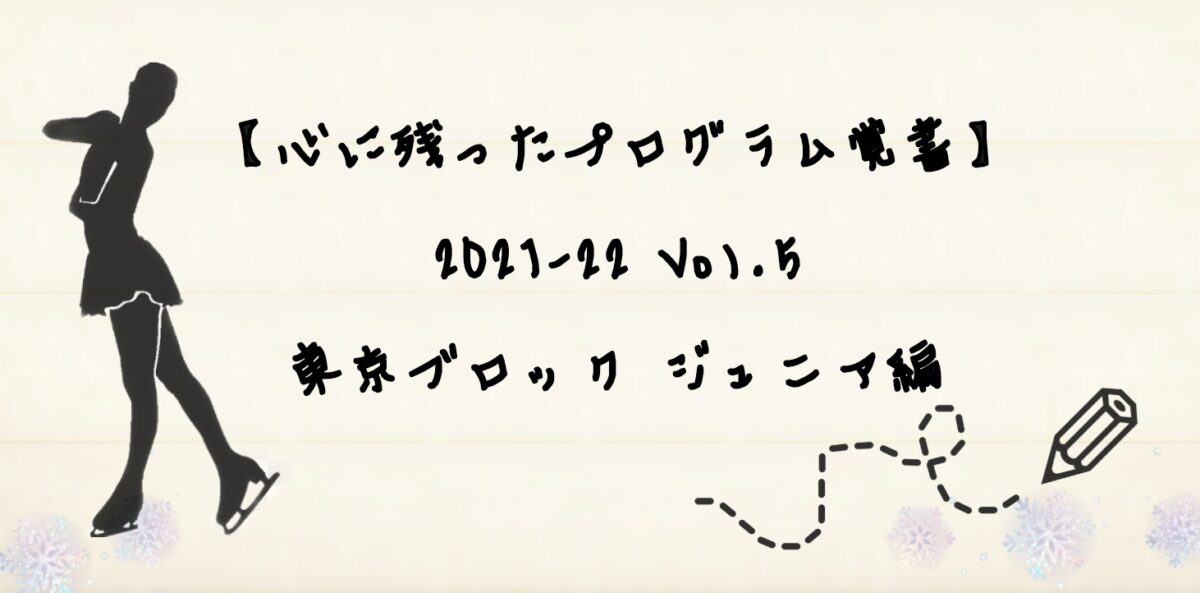 【心に残ったプログラム覚書】
2021-22 Vol.5
東京ブロック ジュニア編